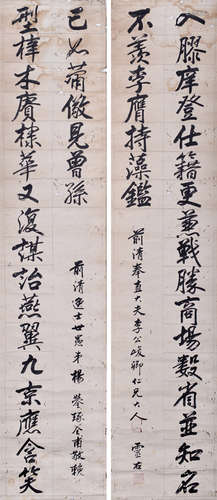 入膠庠登仕籍更兼戰勝商場數省並知名
不羨李膺持藻鑑
前清奉直大夫李公峻卿仁兄大人 靈右
型梓木賡棣華又復謀詒燕翼九京應含笑
已如蕭倣見曾孫
前清逸士世愚弟楊琢全甫敬輓